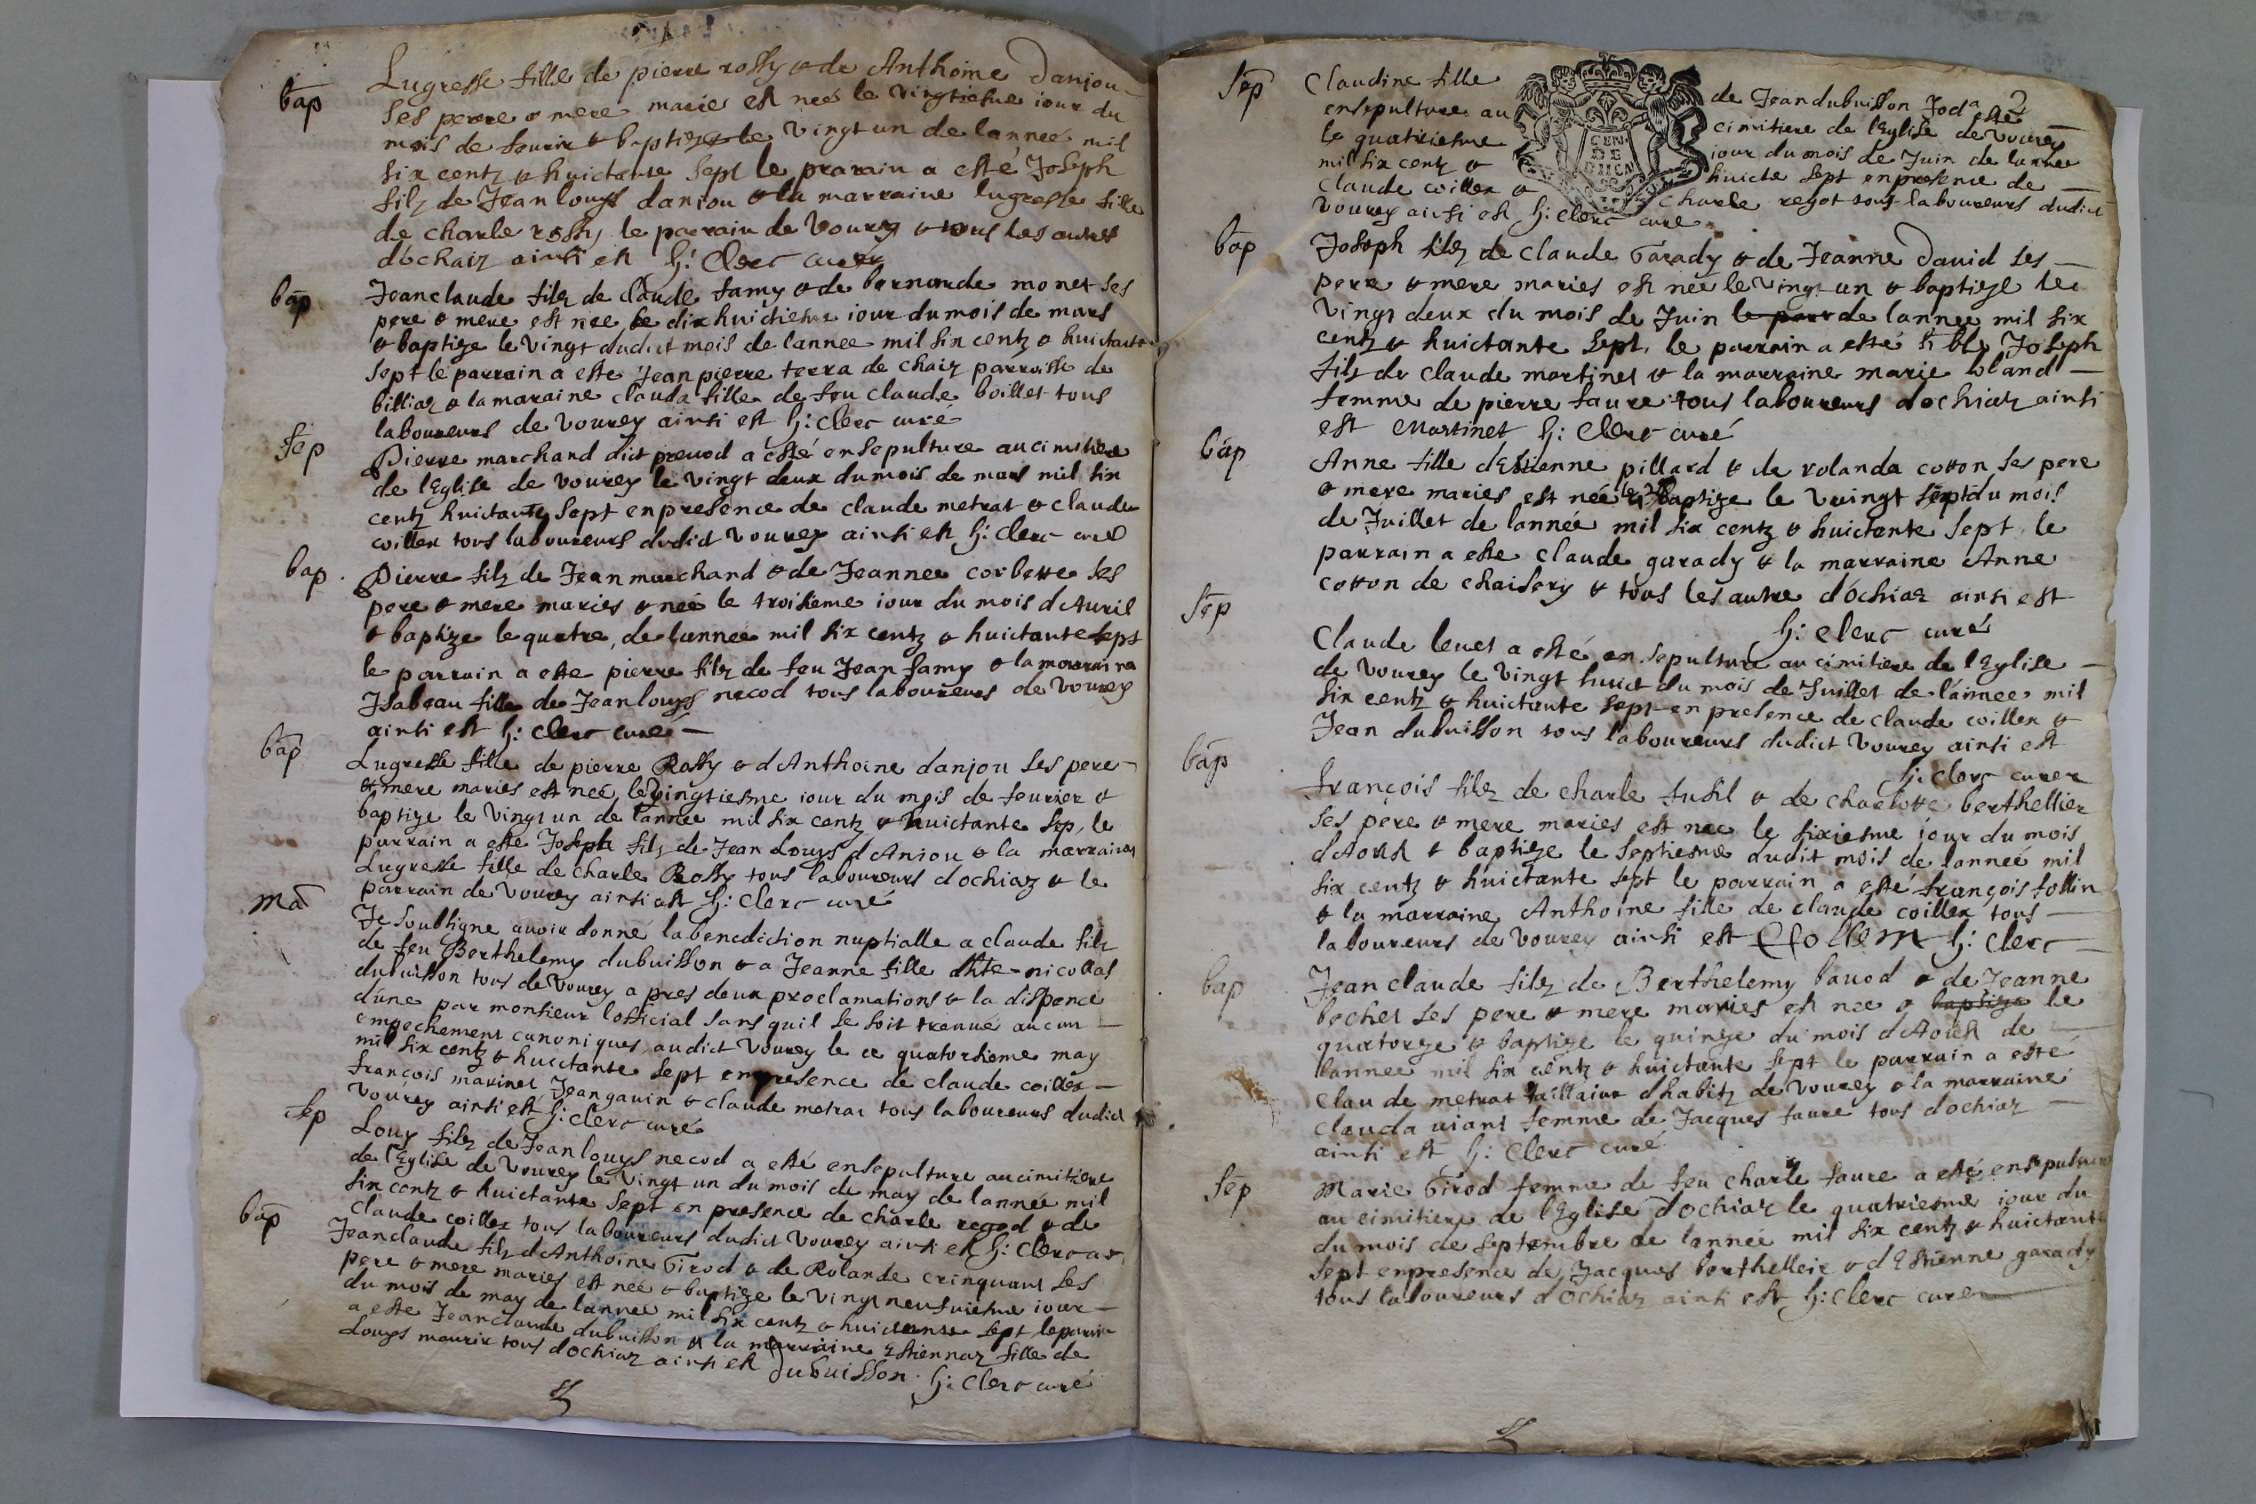 bap
Lugresse fille de pierre rosty & de Anthoine Danjou
ses perere & mere maries est neé le vingtiesme iour du
mois de feurir & baptizé le vingt un de lanneé mil
six centz & huictante sept le prarain a esté Joseph
filz de Jean louys danjou & la marraine lugresse fille
de charle rosty le parrain de Vourey & tous les autres
dôchaiz ainsi est h: Clerc curer
bap
Jeanclaude filz de Claude famy & de bernarde monet ses
pere & mere est neé le dix huictiesme iour du mois de mars
& baptize le vingt dudict mois de lanneé mil six centz & huictante
sept le parrain a este Jean pierre terra de chaiz parroisse de
billiaz & la maraine clauda fille de feu claude boillet tous
laboureurs de vourey ainsi est h: clerc curé
sep
Pierre marchand dict preuod a esté ensepulture au cimitiere
de lEglise de vourey le vingt deux du mois de mars mil six
centz huictante sept en presence de claude metrat & claude
coillex tous laboureurs dudict vourey ainsi est h: clerc curé
bap
Pierre filz de Jean marchand & de Jeanneé corbette ses
pere & mere maries & neé le troisieme iour du mois dAuril
& baptize le quatre de lanneé mil six centz & huictante sept
le parrain a este pierre filz de feu Jean famy & la marraine
Isabeau fille de Jean louys necod tous laboureurs de vourey
ainsi est h: clerc cureé
bap
Lugresse fille de pierre Rosty & dAnthoine danjou ses pere
& mere maries est neé le vingtiesme iour du mois de feurier &
baptize le vingt un de lanneé mil six centz & huictante sep, le
parrain a esté Joseph filz de Jean Louys dAnjou & la marraine
Lugresse fille de charle Rosty tous laboureurs dochiaz & le
parrain de vourey ainsi est h: clerc curé
ma
Je soubsigne auoir donné la benediction nuptialle a claude filz
de feu Berthelemy dubuisson & a Jeanne fille dhte nicollas
dubuisson tous de Vourey a pres deux proclamations & la dispence
dune par monsieur lofficial sans quil se soit treuué aucun
empechement canoniques audict vourey le ce quatorsieme may
mil six centz & huictante sept en presence de claude coillex
françois marinet Jean gauin & claude metrat tous laboureurs dudict
vourey ainsi est h: clerc curé
sep
Louy filz de Jean louys necod a esté ensepulture au cimitiere
de lEglise de Vourey le vingt un du mois de may de lanneé mil
six centz & huictante sept en presence de charle regod & de
claude coillex tous laboureurs dudict vourey ainsi est h: clerc
bap
Jeanclaude filz dAnthoine Girod & de Rolande crinquant ses
pere & mere maries est neé & baptize le vingt neufuiesme iour
du mois de may de lanneé mil six centz & huictante sept le parrin
a este Jeanclaude dubuisson & la marraine Estiennaz fille de
Louys maurix tous dochiaz ainsi est Dubuisson h: clerc curé
2
sep
Claudine fille de Jean dubuisson Joda a esté
ensepulture au cimitiere de lEglise de vourey
le quatriesme iour du mois de Juin de lanneé
mil six centz & huicte sept en presence de
claude coillex & charle regot tous laboureurs dudict
vourey ainsi est h: clerc cure
CEN
DE
bap
Joseph filz de claude Garady & de Jeanne Dauid ses
pere & mere maries est neé le vingt un & baptize le
vingt deux du mois de Juin le parr de lanneé mil six
centz & huictante sept, le parrain a esté Joseph
filz de claude martinet & la marraine marie bland
femme de pierre faure tous laboureurs dochiaz ainsi
est Martinet h: Clerc curé
bap
Anne fille dEstienne pillard & de rolanda cotton ses pere
& mere maries est neé baptize le vuingt sept du mois
de Juillet de lanneé mil six centz & huictante sept le
parrain a esté claude garady & la marraine Anne
cotton de chaisery & tous les autre dôchiaz ainsi est
h: clerc curé
sep
Claude leuet a esté en sepulture au cimitiere de lEglise
de vourey le vingt huict du mois de Juillet de lánneé mil
six centz & huictante sept en presence de claude coillex &
Jean dubuisson tous laboureurs dudict Vourey ainsi est
h: clerc curer
bap
François filz de charle fusil & de charlotte berthellier
ses pere & mere maries est neé le sixiesme jour du mois
dAoust & baptize le septiesme dudit mois de lanneé mil
six centz & huictante sept le parrain a esté françois follin
& la marraine Anthoine fille de claude coillex tous
laboureurs de vourey ainsi est h: clerc
bap
Jean claude filz de Berthelemy bauod & de Jeanne
bochet ses pere & mere maries est neé & baptize le
quatorze & baptize le quinze du mois dAoust de
lanneé mil six centz & huictante sept le parrain a esté
claude metrat taillaire dhabitz de vourey & la marraine
clauda uiant femme de Jacques faure tous dochiaz
ainsi est h: clerc curé
sep
Marie Girod femme de feu charle faure a esté ensepulture
au cimitiere de lEglise dochiaz le quatriesme iour du
du mois de septembre de lanneé mil six centz & huictante
sept en presence de Jacques berthelleir & dEstienne garady
tous laboureurs dochiaz ainsi est h: clerc cure